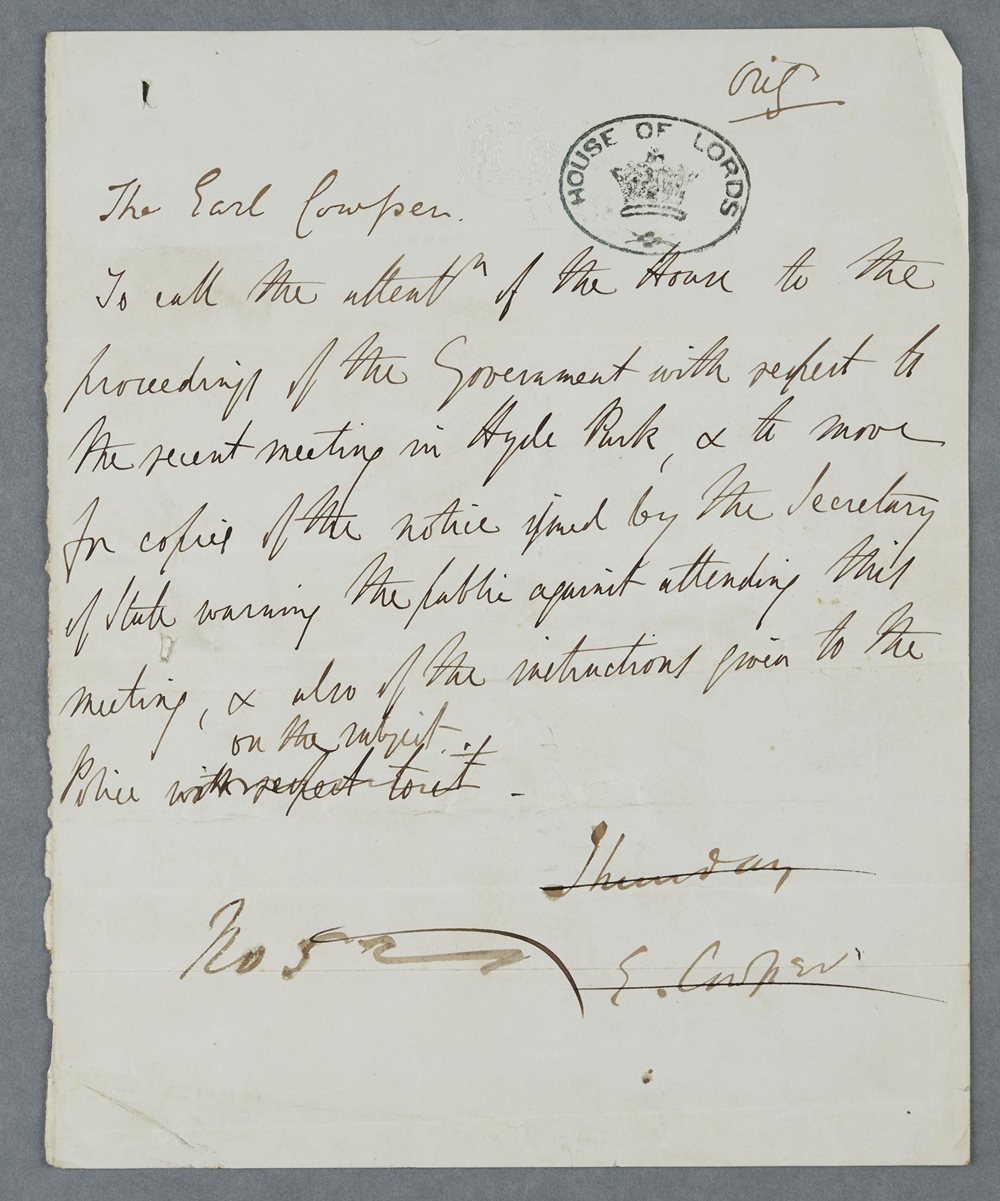 orig
HOUSE OF LORDS
The Earl Cowper.
To call the attentn of the House to the
proceedings of the Government with respect to
the recent meeting in Hyde Park, & to move
for copies of the notice issued by the Secretary
of State warning the public against attending this
meeting, & also of the instructions given to the
on the subject.
Police with respect to it -
Thursday
No 5
E. Cowper